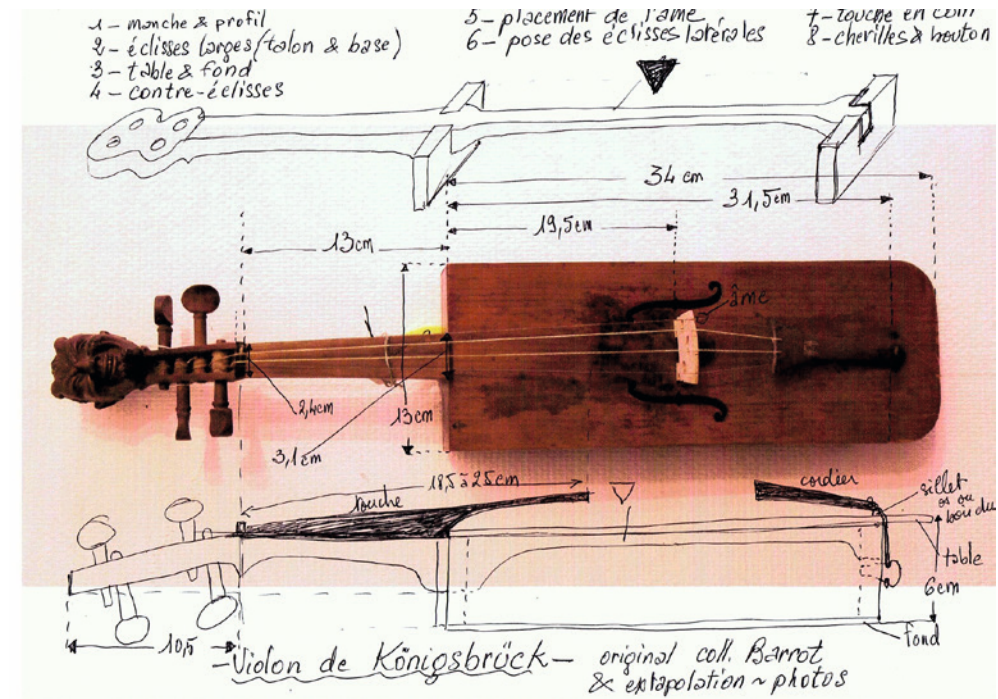 1 – manche & profil
2 – éclisses larges (talon & base)
3 – table & fond
4 – contre-éclisses
5 – placement de l'âme
6 – pose des éclisses latérales
7 – touche en coin
8 – chevilles & bouton
34 cm
31,5 cm
19,5 cm
13 cm
âme
2,4 cm
13 cm
3,1 cm
18,5 à 25 cm
touche
cordier
sillet
os ou
bois dur
table
6 cm
fond
10,5
– Violon de Königsbrück –
original coll. Barrot
& extapolation ~ photos